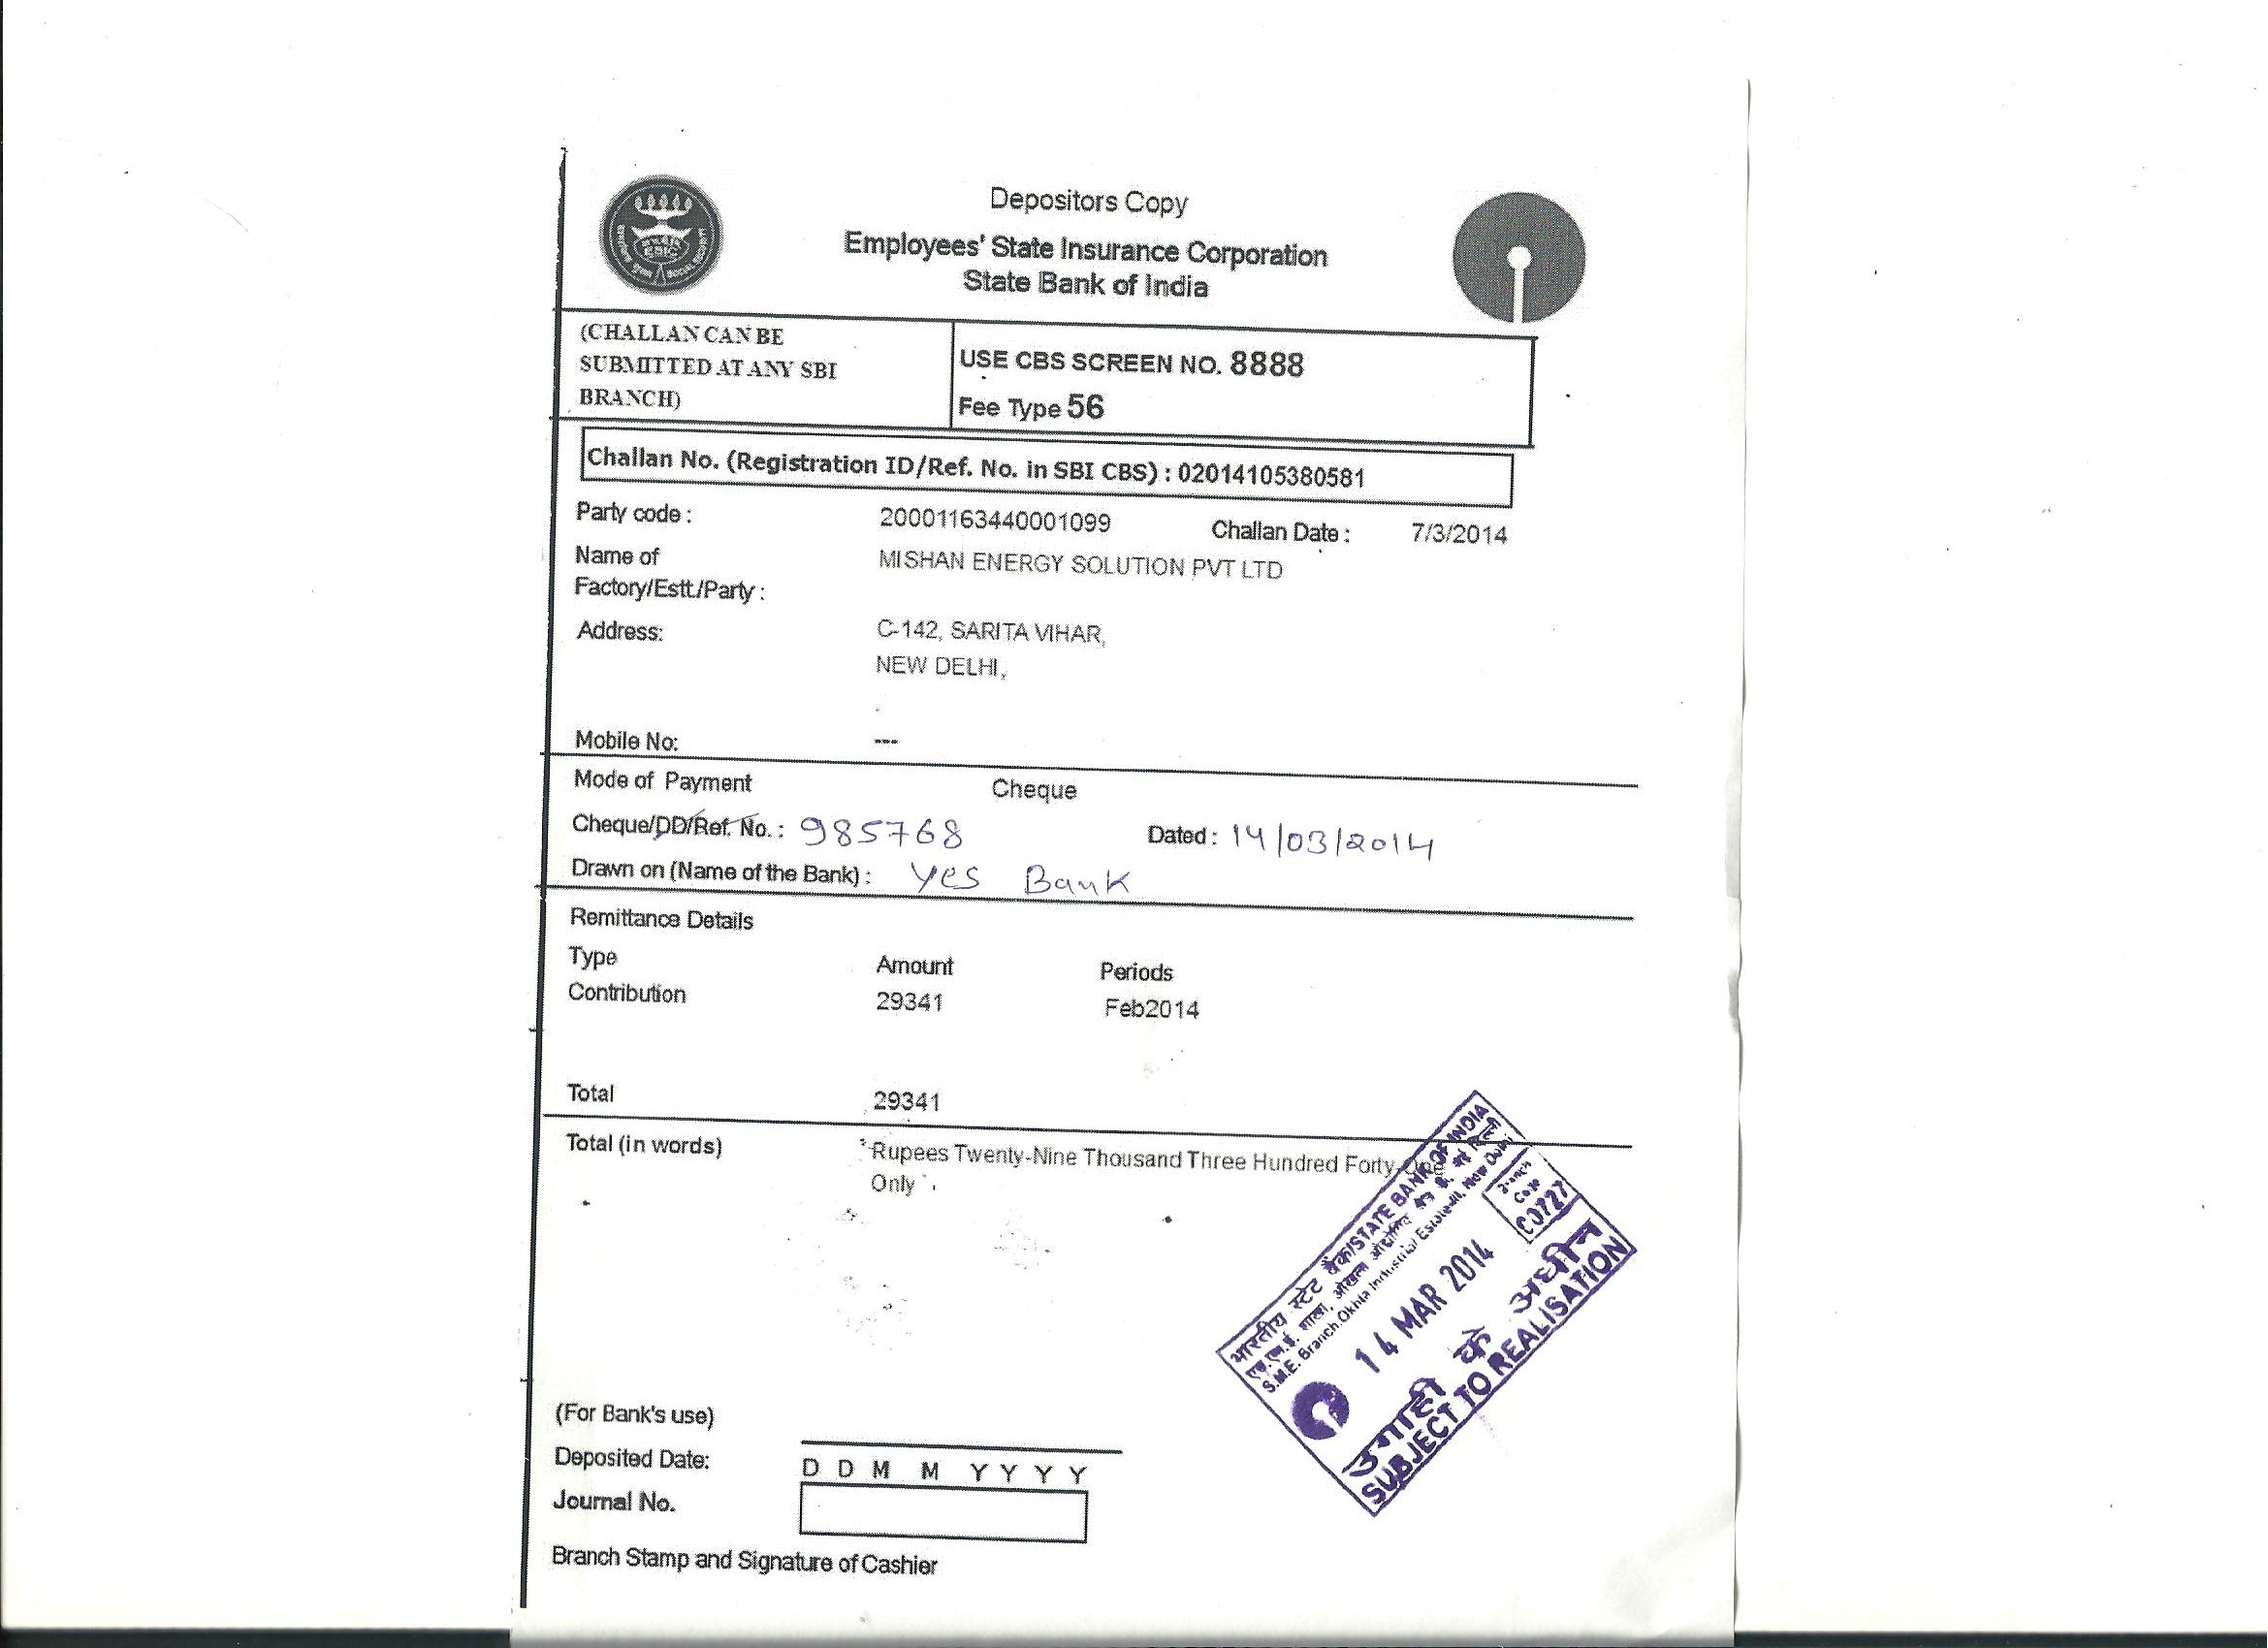 Depositors Copy
Employees' State Insurance Corporation
State Bank of India
(CHALLAN CAN BE
SUBMITTED AT ANY SBI
BRANCH)
USE CBS SCREEN NO. 8888
Fee Type 56
Challan No. (Registration ID/Ref. No. in SBI CBS) : 02014105380581
Party code : 20001163440001099 Challan Date : 7/3/2014
Name of
Factory/Estt./Party : MISHAN ENERGY SOLUTION PVT LTD
Address: C-142, SARITA VIHAR,
NEW DELHI,
Mobile No: ---
Mode of Payment Cheque
Cheque/DD/Ref. No. : 985768 Dated : 14/03/2014
Drawn on (Name of the Bank) : Yes Bank
Remittance Details
Type Amount Periods
Contribution 29341 Feb2014
Total 29341
Total (in words) Rupees Twenty-Nine Thousand Three Hundred Forty-One
Only
भारतीय स्टेट बैंक/STATE BANK OF INDIA
एस.एम.ई. शाखा, ओखला औद्योगिक क्षेत्र
S.M.E. Branch, Okhla Industrial Estate-III, New Delhi
Branch
Code
C0727
14 MAR 2014
उगाही के अधीन
SUBJECT TO REALISATION
(For Bank's use)
Deposited Date:
D D M M Y Y Y Y
Journal No.
Branch Stamp and Signature of Cashier